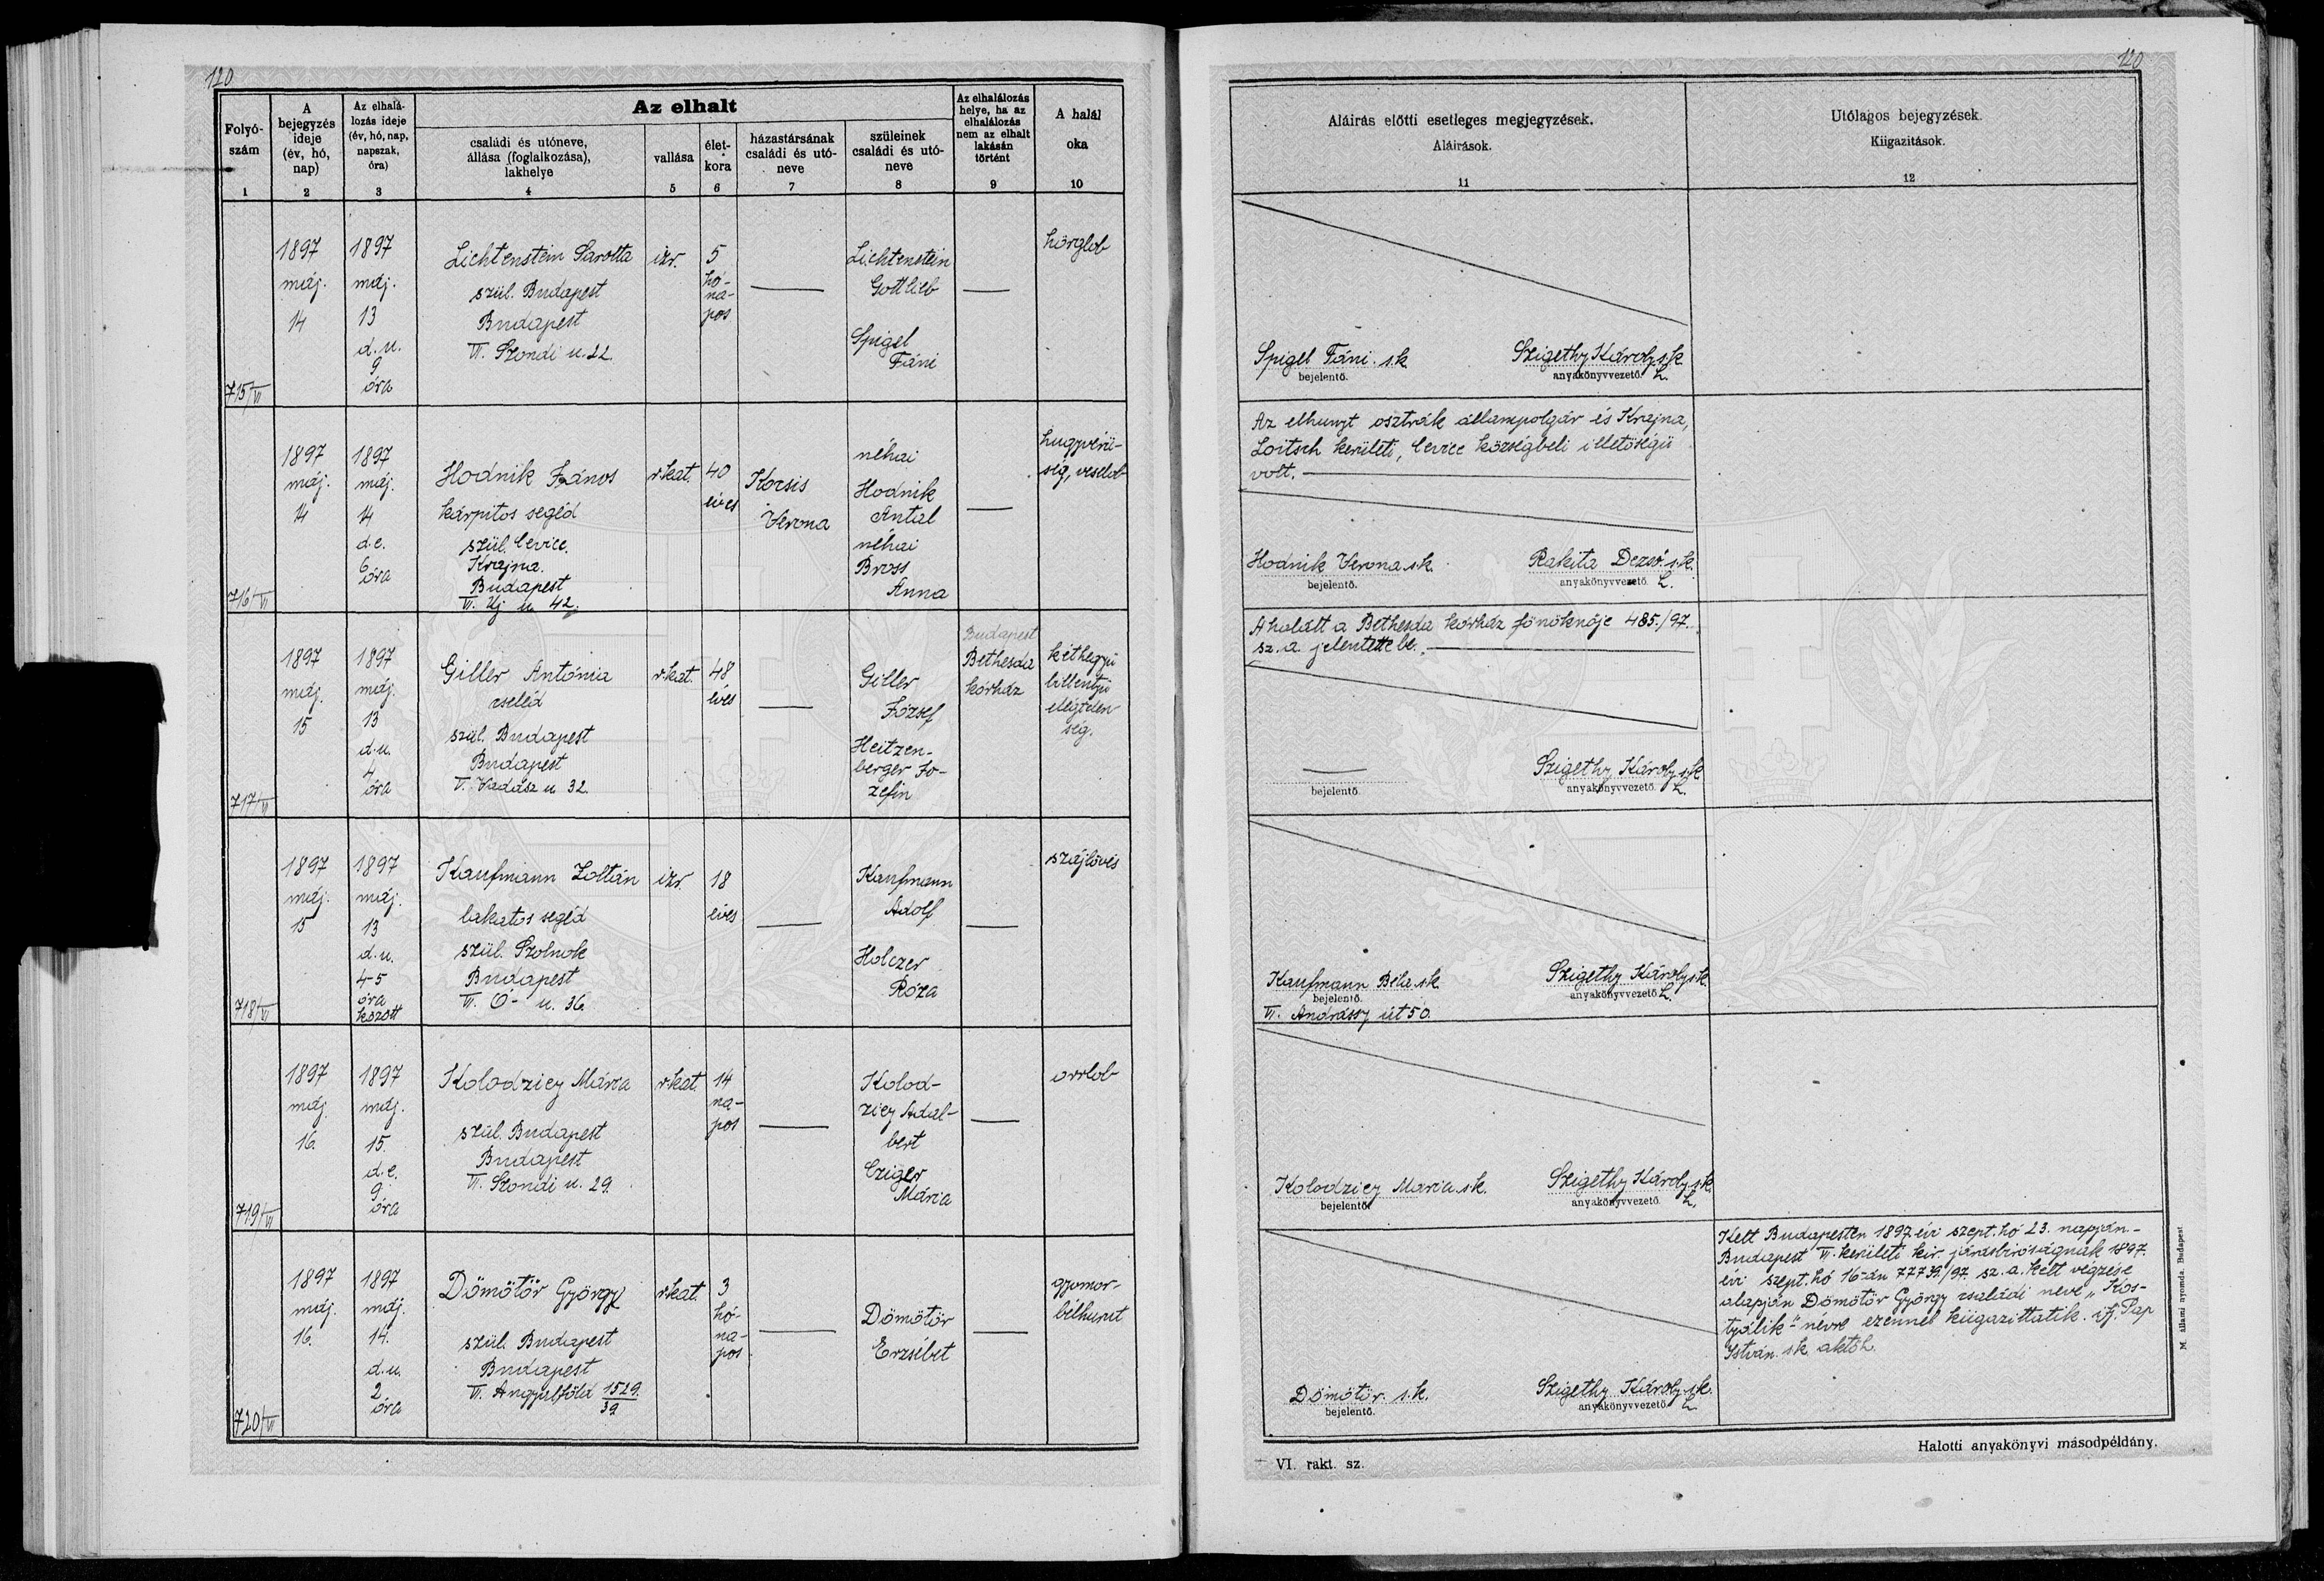 120
Az elhalt
Folyó-
szám
A
bejegyzés
ideje
(év, hó,
nap)
Az elhalá-
lozás ideje
(év, hó, nap,
napszak,
óra)
családi és utóneve,
állása (foglalkozása),
lakhelye
vallása
élet-
kora
házastársának
családi és utó-
neve
szüleinek
családi és utó-
neve
Az elhalálozás
helye, ha az
elhalálozás
nem az elhalt
lakásán
történt
A halál
oka
1 2 3 4 5 6 7 8 9 10
715/VI
1897
máj.
14
1897
máj.
13
d.u.
9
óra
Lichtenstein Sarolta
szül. Budapest
Budapest
VI. Szondi u. 22.
izr.
5
hó-
na-
pos
Lichtenstein
Gottlieb
Spigel
Fáni
hörglob
716/VI
1897
máj.
14
1897
máj.
14
d.e.
6
óra
Hodnik János
kárpitos segéd
szül. Cevice.
Krajna.
Budapest
VI. Uj u. 42.
r.kat.
40
éves
Kocsis
Verona
néhai
Hodnik
Antal
néhai
Bross
Anna
hugyvérü-
ség, veselob
717/VI
1897
máj.
15
1897
máj.
13
d.u.
4
óra
Giller Antónia
cseléd
szül. Budapest
Budapest
V. Vadász u 32.
r.kat.
48
éves
Giller
József
Heitzen-
berger Jo-
zefin
Budapest
Bethesda
kórház
kéthegyü
billentyü
elégtelen-
ség.
718/VI
1897
máj.
15
1897
máj.
13
d.u.
4-5
óra
között
Kaufmann Zoltán
lakatos segéd
szül. Szolnok
Budapest
VI. Ó- u. 36.
izr.
18
éves
Kaufmann
Adolf
Holczer
Róza
szájlövés
719/VI
1897
máj.
16.
1897
máj.
15.
d.e.
9
óra
Kolodziey Mária
szül. Budapest
Budapest
VI. Szondi u. 29.
r.kat.
14
na-
pos
Kolod-
ziey Adal-
bert
Cziger
Mária
orrlob
720/VI
1897
máj.
16.
1897
máj.
14.
d.u.
2
óra
Dömötör György
szül. Budapest
Budapest
VI. Angyalföld 1529.
39
r.kat.
3
hó-
na-
pos
Dömötör
Erzsébet
gyomor-
bélhurut
120
Aláirás előtti esetleges megjegyzések.
Aláirások.
11
Utólagos bejegyzések.
Kiigazitások.
12
Spigel Fáni. s.k. Szigethy Károly s.k.
bejelentő. anyakönyvvezető. L.
Az elhunyt osztrák állampolgár és Krajna,
Loitsch kerületi, Cevice községbeli illetőségü
volt.
Hodnik Verona s.k. Rakita Dezső s.k.
bejelentő. anyakönyvvezető. L.
A halált a Bethesda kórház főnöknője 485./97.
sz. a. jelentette be.
Szigethy Károly s.k
bejelentő. anyakönyvvezető. L.
Kaufmann Béla s.k. Szigethy Károly s.k.
bejelentő. anyakönyvvezető. L.
VI. Andrássy út 50.
Kolodziey Maria s.k. Szigethy Károly s.k.
bejelentő. anyakönyvvezető. L.
Kelt Budapesten 1897. évi szept. hó 23. napján -
Budapest VI. kerületi kir. járásbiróságnak 1897.
évi szept. hó 16-án 77739./97. sz. a. kelt végzése
alapján Dömötör György családi neve „Kos-
tyálik" névre ezennel kiigazittatik. ifj. Pap
István s.k. aktöh.
Dömötör s.k. Szigethy Károly s.k.
bejelentő. anyakönyvvezető. L.
M. állami nyomda. Budapest
Halotti anyakönyvi másodpéldány.
VI. rakt. sz.